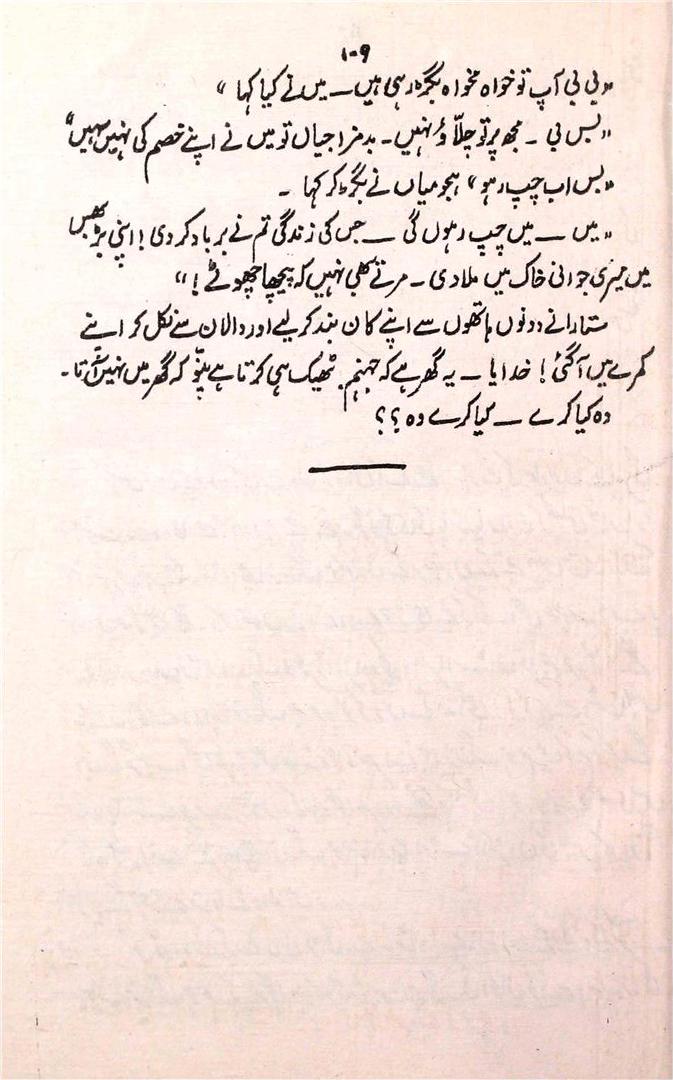 ۱۰۹
"بی بی آپ تو خواہ مخواہ بگڑ رہی ہیں ـ میں نے کیا کہا"
"بس بی ۔ مجھ پر تو چلّاؤ نہیں ۔ بدمزاجیاں تو میں نے اپنے خصم کی نہیں سہیں"
"بس اب چپ رہو" ہجو میاں نے بگڑ کر کہا ۔
"میں ـ میں چپ رہوں گی ـ جس کی زندگی تم نے برباد کر دی ! اپنی بڑھبس
میں میری جوانی خاک میں ملا دی ۔ مرتے بھی نہیں کہ پیچھا چھوٹے !"
ستارا نے دونوں ہاتھوں سے اپنے کان بند کر لیے اور دالان سے نکل کر اپنے
کمرے میں آ گئی ! خدایا ـ یہ گھر ہے کہ جہنم ۔ ٹھیک ہی کرتا ہے پنّو کہ گھر میں نہیں آتا ۔
وہ کیا کرے ـ کیا کرے وہ ؟؟